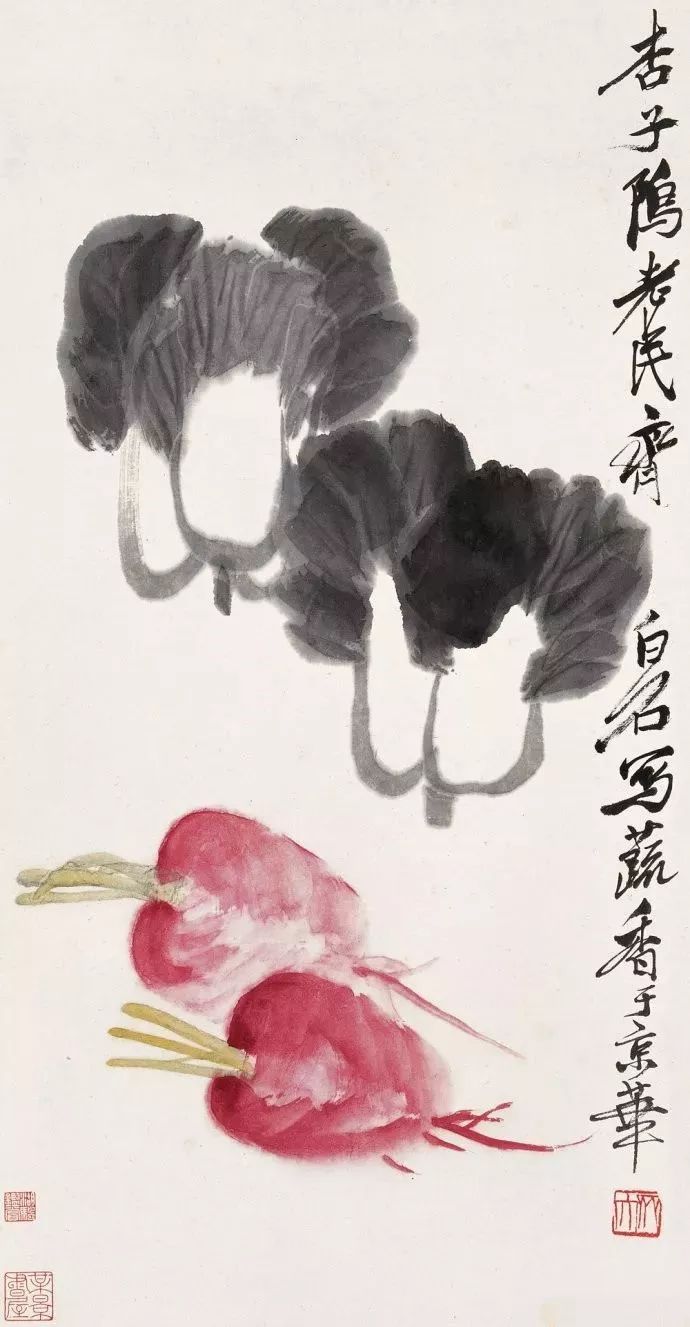 杏子隖老民齊白石写蔬香于京華